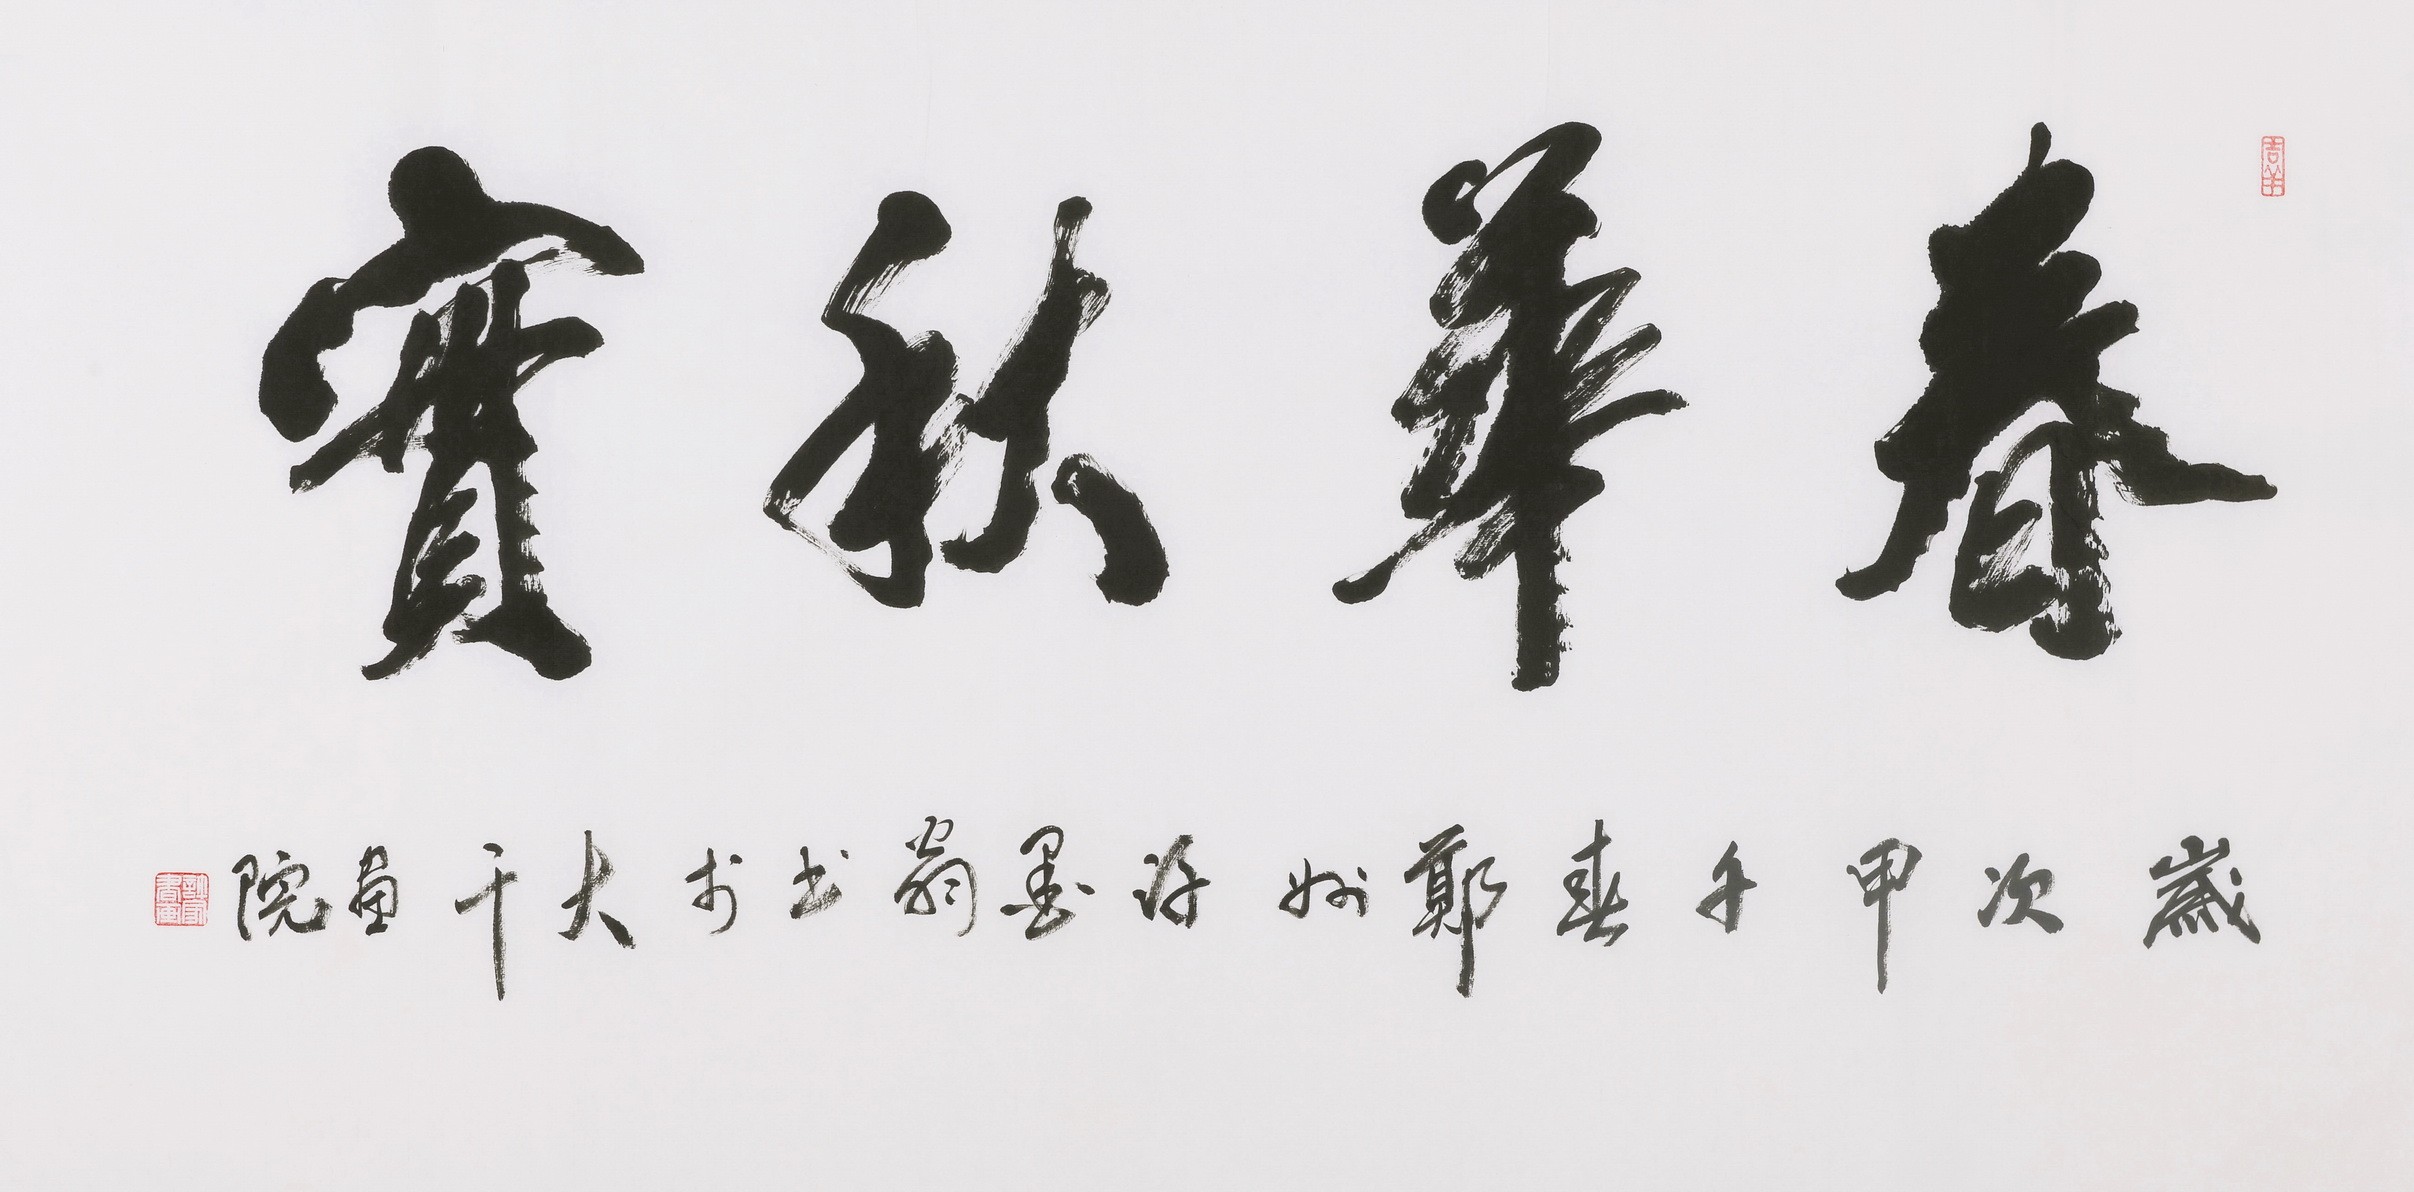 春華秋實
歲次甲午春鄭州許墨翁书於大千畫院